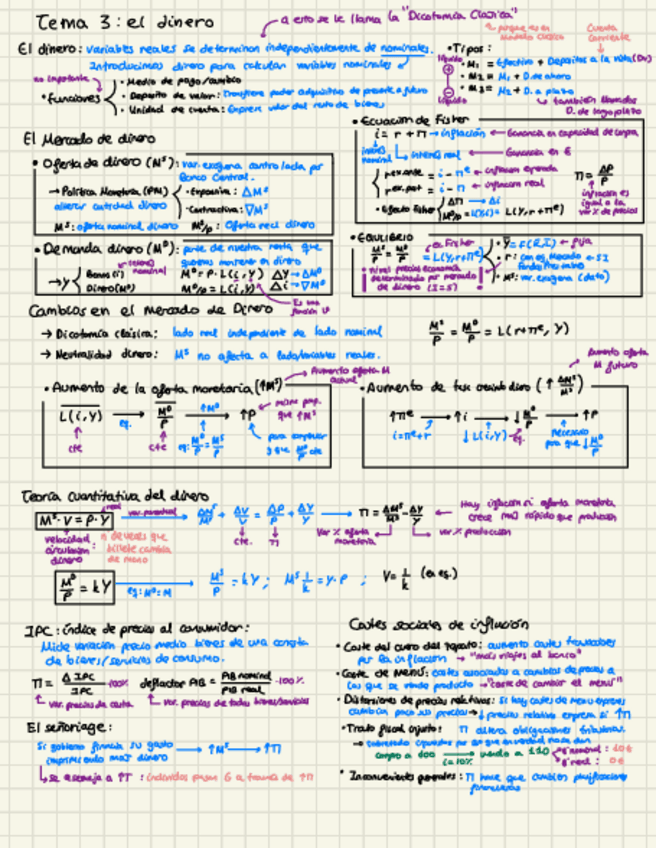 Tema 3: el dinero
a esto se le llama la "Dicotomía Clásica"
El dinero: variables reales se determinan independientemente de nominales.
Introducimos dinero para calcular variables nominales
• Funciones
• Medio de pago/cambio
• Deposito de valor: Transfiere poder adquisitivo de presente a futuro
• Unidad de cuenta: Expresa valor del resto de bienes
• Tipos:
Cuenta Corriente
líquido
• M1 = Efectivo + Depositos a la vista (Dv)
• M2 = M1 + D. de ahorro
• M3 = M2 + D. a plazo
también llamados D. de largo plazo
El Mercado de dinero
• Oferta de dinero (Mˢ): var. exogena controlada por Banco Central.
→ Política Monetaria (PM) alterar cantidad dinero
• Expansiva: ΔMˢ
• Contractiva: ∇Mˢ
Mˢ: oferta nominal dinero Mˢ/p: Oferta real dinero
• Demanda dinero (Mᴰ): parte de nuestra renta que queremos mantener en dinero
→ Y
Bonos (i)
Dinero (Mᴰ)
Mᴰ = P · L(i, Y)
Mᴰ/p = L(i, Y)
ΔY → ΔMᴰ
Δi → ∇Mᴰ
Es una función
• Ecuación de Fisher
i = r + π → inflación
interés nominal
interés real
Ganancia en €
r ex ante = i - πᵉ ← inflación esperada
r ex post = i - π ← inflación real
π = ΔP/P
inflación es igual a la var % de precios
• Efecto Fisher
Δπ → Δi
L(Y, r+πᵉ)
• EQUILIBRIO
Mˢ/P = Mᴰ/P = L(Y, r+πᵉ)
ec. Fisher
• Nivel precios economía determinado por mercado de dinero
• Y = F(K, L) ← fija
• Mˢ: var. exogena (dato)
Cambios en el mercado de Dinero
→ Dicotomía clásica: lado real independiente de lado nominal
→ Neutralidad dinero: Mˢ no afecta a lado/variables reales.
Mˢ/P = Mᴰ/P = L(r+πᵉ, Y)
• Aumento de la oferta monetaria (↑Mˢ)
Aumento oferta M actual
L(i, Y) → Mᴰ/P → ↑P
cte
cte
eq: Mᴰ/P = Mˢ/P
misma prop. que ↑Mˢ
• Aumento de tasa crecimiento dinero (↑ ΔMˢ/Mˢ)
Aumento oferta M futuro
↑πᵉ → ↑i → ↓Mᴰ/P → ↑P
i = πᵉ + r
↓L(i, Y)
Necesario para que ↓Mˢ/P
Teoría cuantitativa del dinero
Mˢ · V = P · Y
real
var. porcentual
ΔMˢ/Mˢ + ΔV/V = ΔP/P + ΔY/Y → π = ΔMˢ/Mˢ - ΔY/Y
Hay inflación si oferta monetaria crece más rápido que producción
cte.
π
Var % oferta monetaria
var % producción
velocidad circulación dinero
: n de veces que billete cambia de mano
Mᴰ/P = kY
eq: Mᴰ = Mˢ
Mˢ/P = kY; Mˢ 1/k = Y · P; V = 1/k (en eq.)
IPC: índice de precios al consumidor:
Mide variación precio medio bienes de una cesta de bienes/servicios de consumo.
π = Δ IPC/IPC · 100% deflactor AB = AB nominal/PIB real · 100%
Var. precios de cesta
Var. precios de todos bienes/servicios
El señoriage:
Si gobierno financia su gasto imprimiendo más dinero → ↑Mˢ → ↑π
se asemeja a ↑T: ciudadanos pagan G a través de ↑π
Costes sociales de inflación
• Coste del cuero del zapato: aumento costes transacciones por la inflación → "más viajes al banco"
• Coste de Menú: costes asociados a cambios de precios a los que se vende producto → "coste de cambiar el menú"
• Distorsiones de precios relativos: Si hay costes de menu empresas cambian poco sus precios → ↓ precios relativos empresa si ↑π
• Trato fiscal injusto: π altera obligaciones tributarias.
compro a 100 → vendo a 110
i = 10%
g. nominal: 10€
g. real: 0€
• Inconvenientes generales: π hace que cambien planificaciones financieras